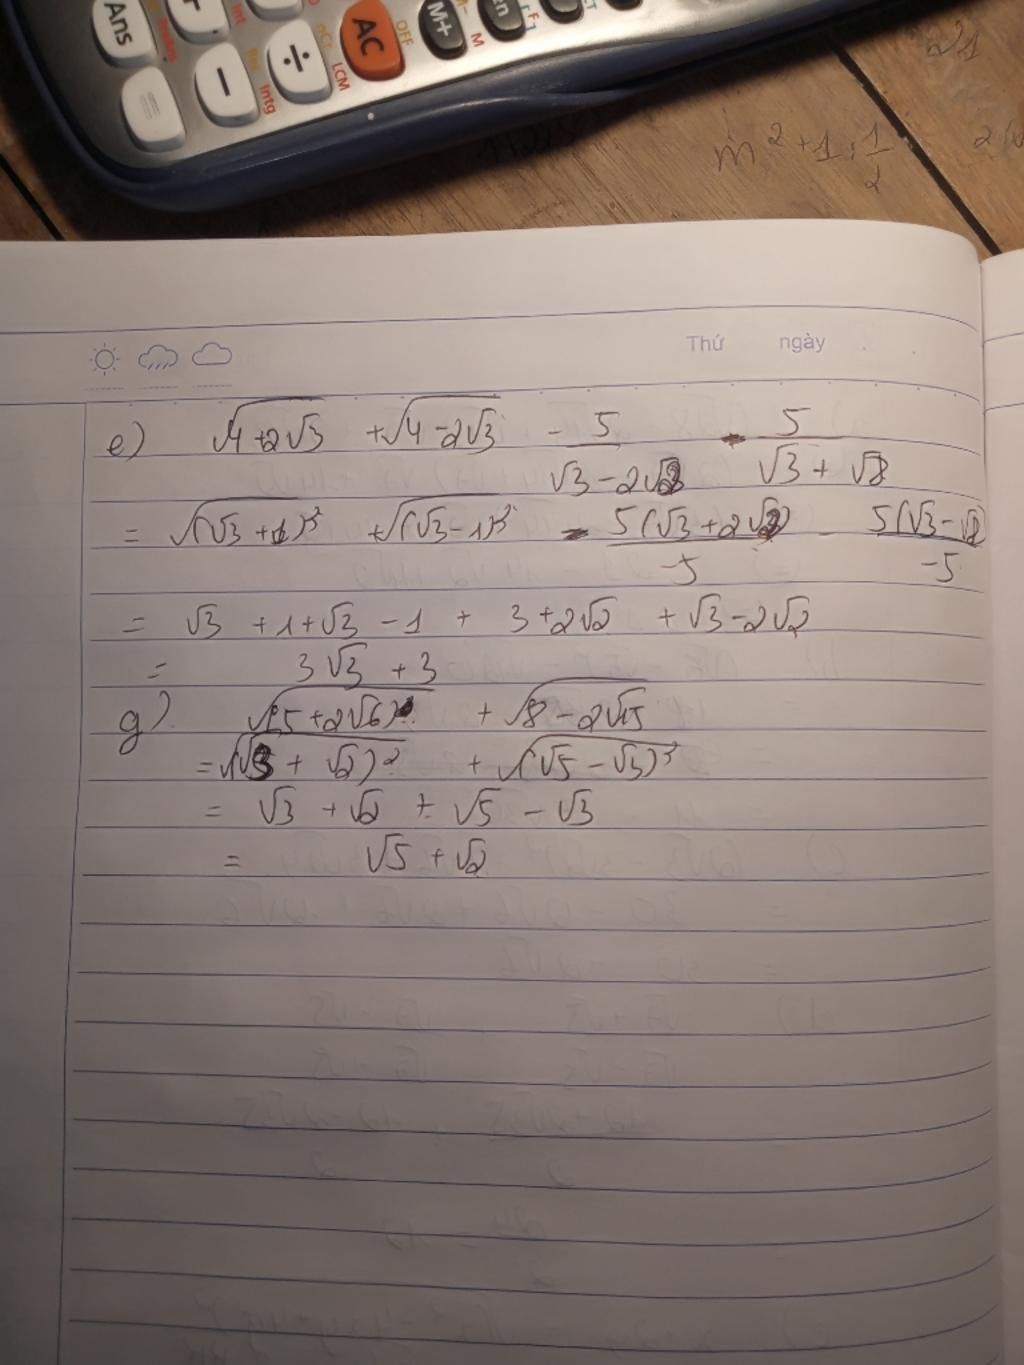 Ans
÷
AC
OFF
LCM
M+
M
Intg
Int
−
m² + 1 : 1/2
Thứ ngày
e) √(4+2√3) + √(4-2√3) - 5/(√3-2√2) - 5/(√3+√8)
= √(√3+1)² + √(√3-1)² - 5(√3+2√2)/-5 - 5(√3-√8)/-5
= √3 + 1 + √3 - 1 + 3 + 2√2 + √3 - 2√2
= 3√3 + 3
g) √(5+2√6) + √(8-2√15)
= √(√3 + √2)² + √(√5 - √3)²
= √3 + √2 + √5 - √3
= √5 + √2